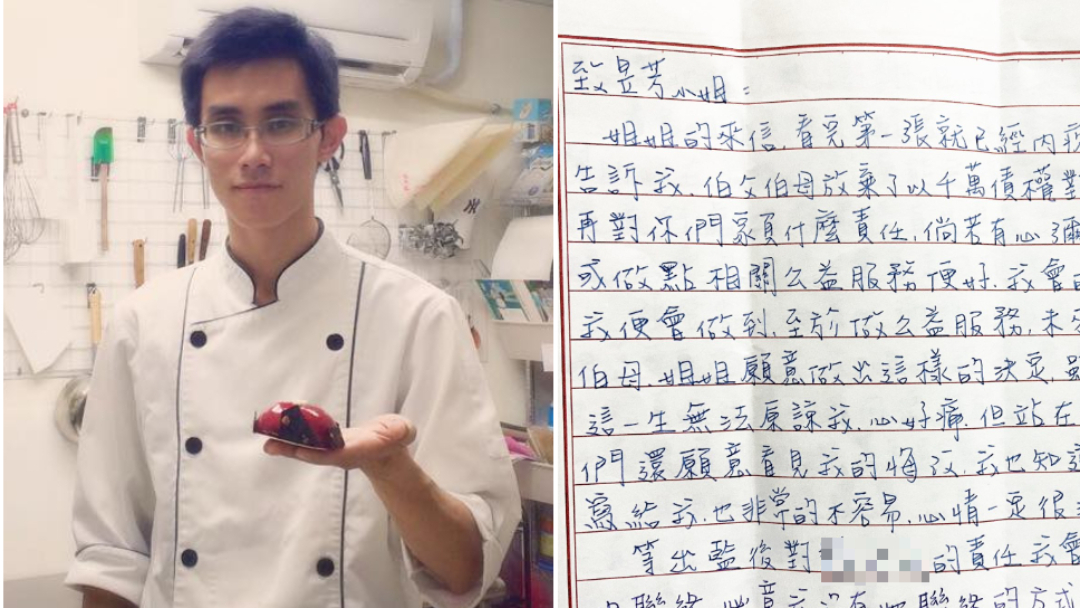 致昱芳小姐：
姐姐的來信，看見第一張就已經內疚
告訴我，伯父伯母放棄了以千萬債權對
再對你們家負什麼責任，倘若有心彌
或做點相關公益服務便好，我會
我便會做到，至於做公益服務，未
伯母、姐姐願意做出這樣的決定，
這一生無法原諒我，心好痛，但站在
們還願意看見我的悔改，我也知道
寫給我，也非常的不容易，心情一定很
等出監後對 的責任我會